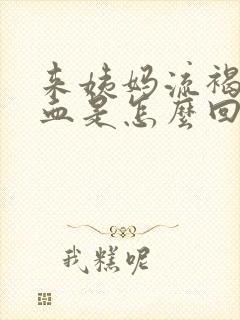 来姨妈流褐
血是怎麼回
我糕呢